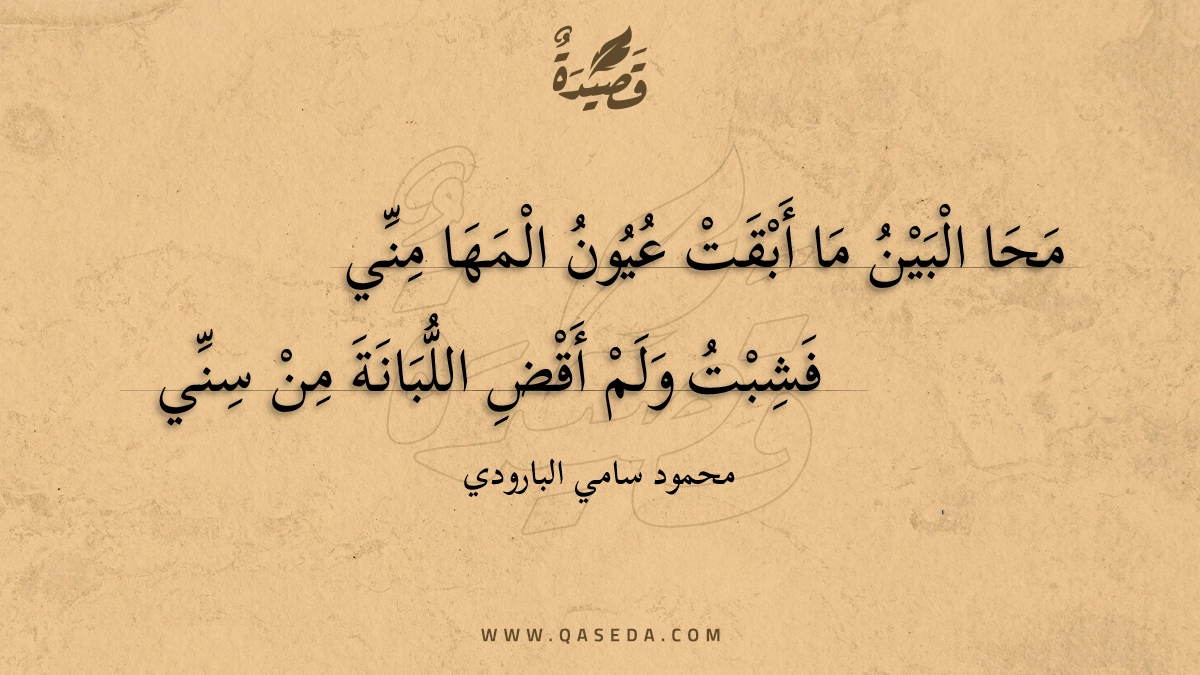 قَصِيدَةٌ
مَحَا الْبَيْنُ مَا أَبْقَتْ عُيُونُ الْمَهَا مِنِّي
فَشِبْتُ وَلَمْ أَقْضِ اللُّبَانَةَ مِنْ سِنِّي
محمود سامي البارودي
WWW.QASEDA.COM